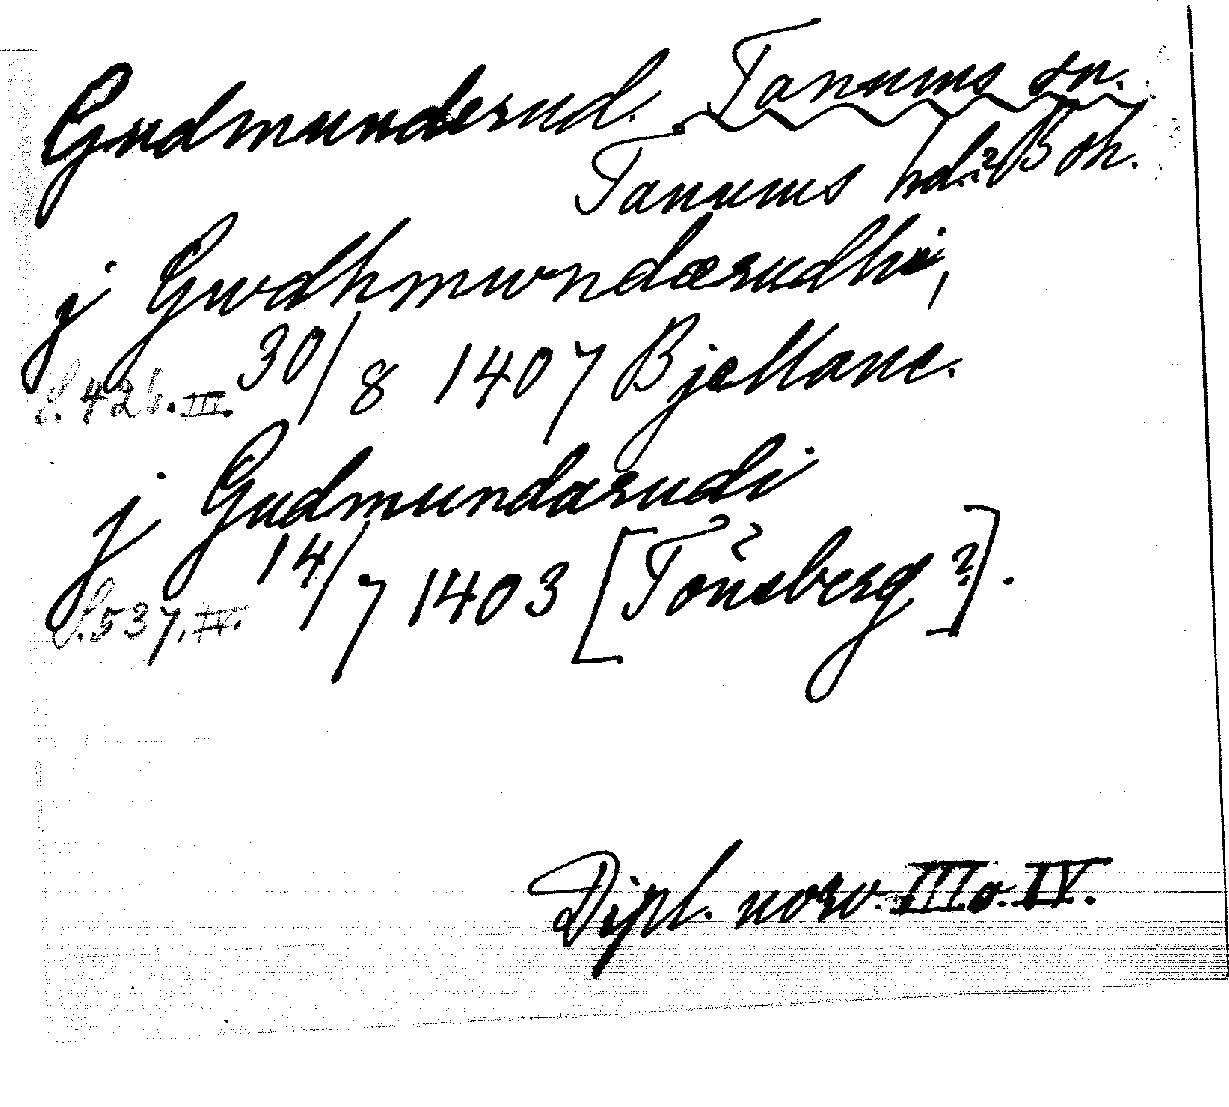 Gudmunderud. Tanums sn.
Tanums hd.? Boh.
j Gwdhmwndærudhi,
S. 426. III. 30/8 1407 Bjelland.
j Gudmundarudi
S. 537. IV. 14/7 1403 [Tönsberg?].
Dipl. norv. III o. IV.